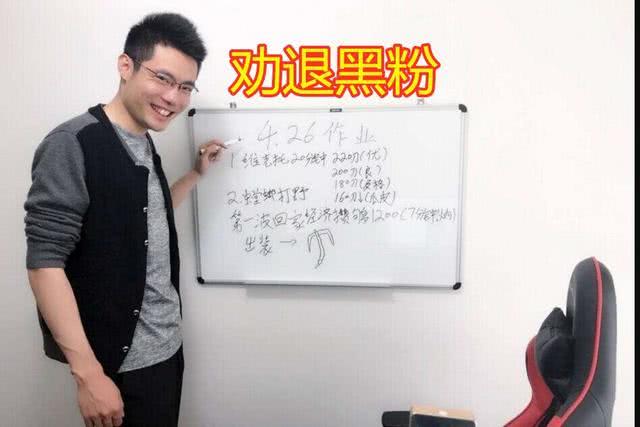 劝退黑粉
4.26作业
1.维克托20分钟 220刀(优)
200刀(良)
180刀(及格)
160刀↓(水友)
2. 蜘蛛打野
第一波回家经济 1200(7分钟内)
出装 →